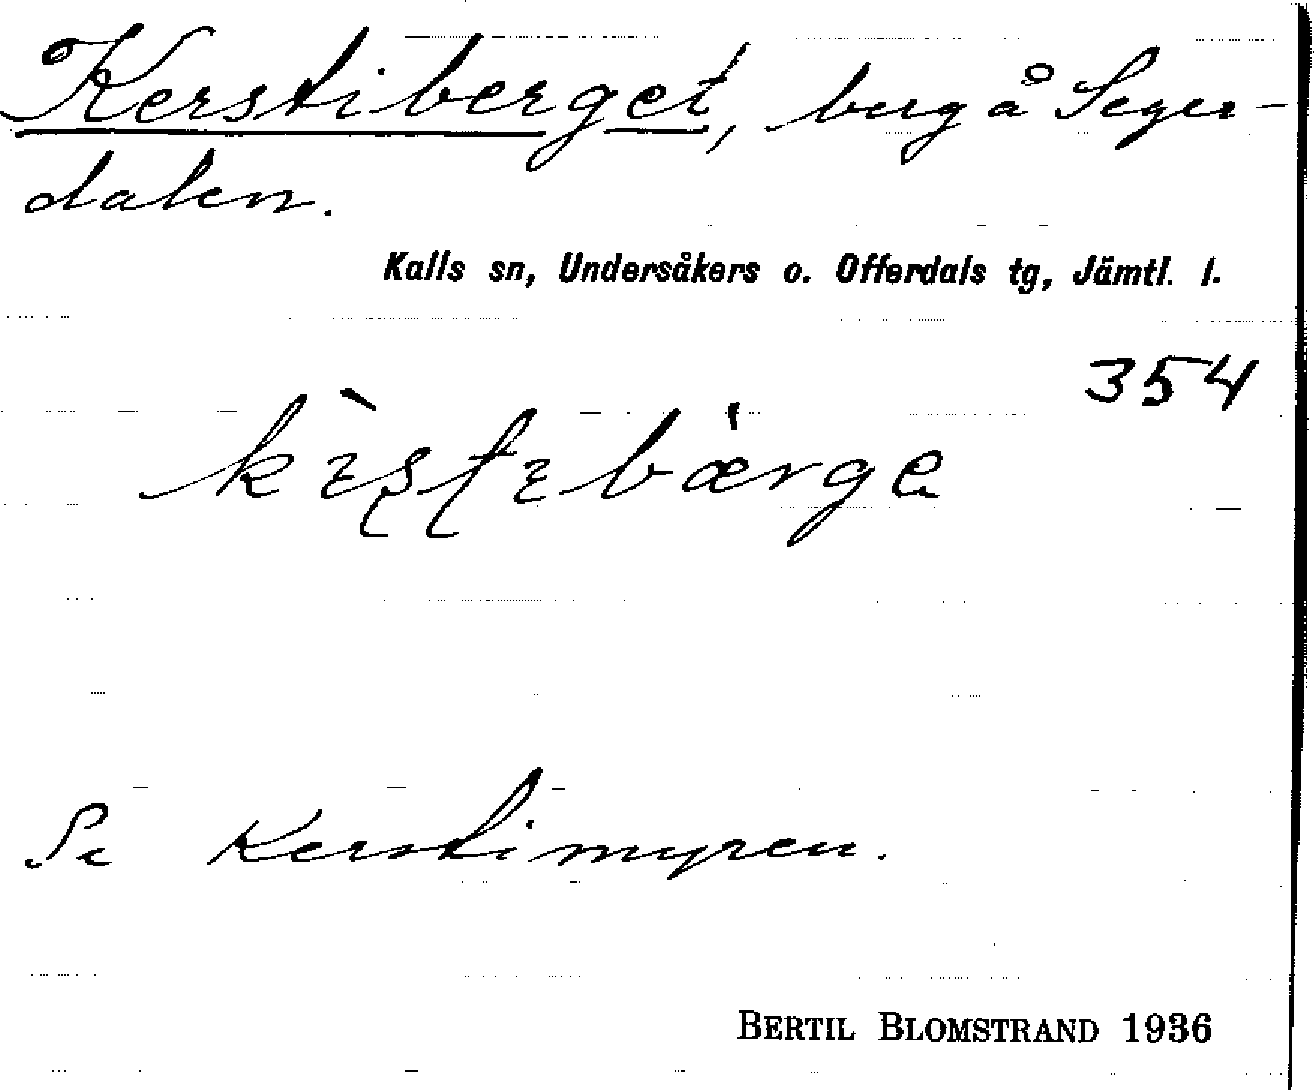 Kerstiberget, berg å Seger-
dalen.
Kalls sn, Undersåkers o. Offerdals tg, Jämtl. l.
354
Se Kerstimyren.
BERTIL BLOMSTRAND 1936